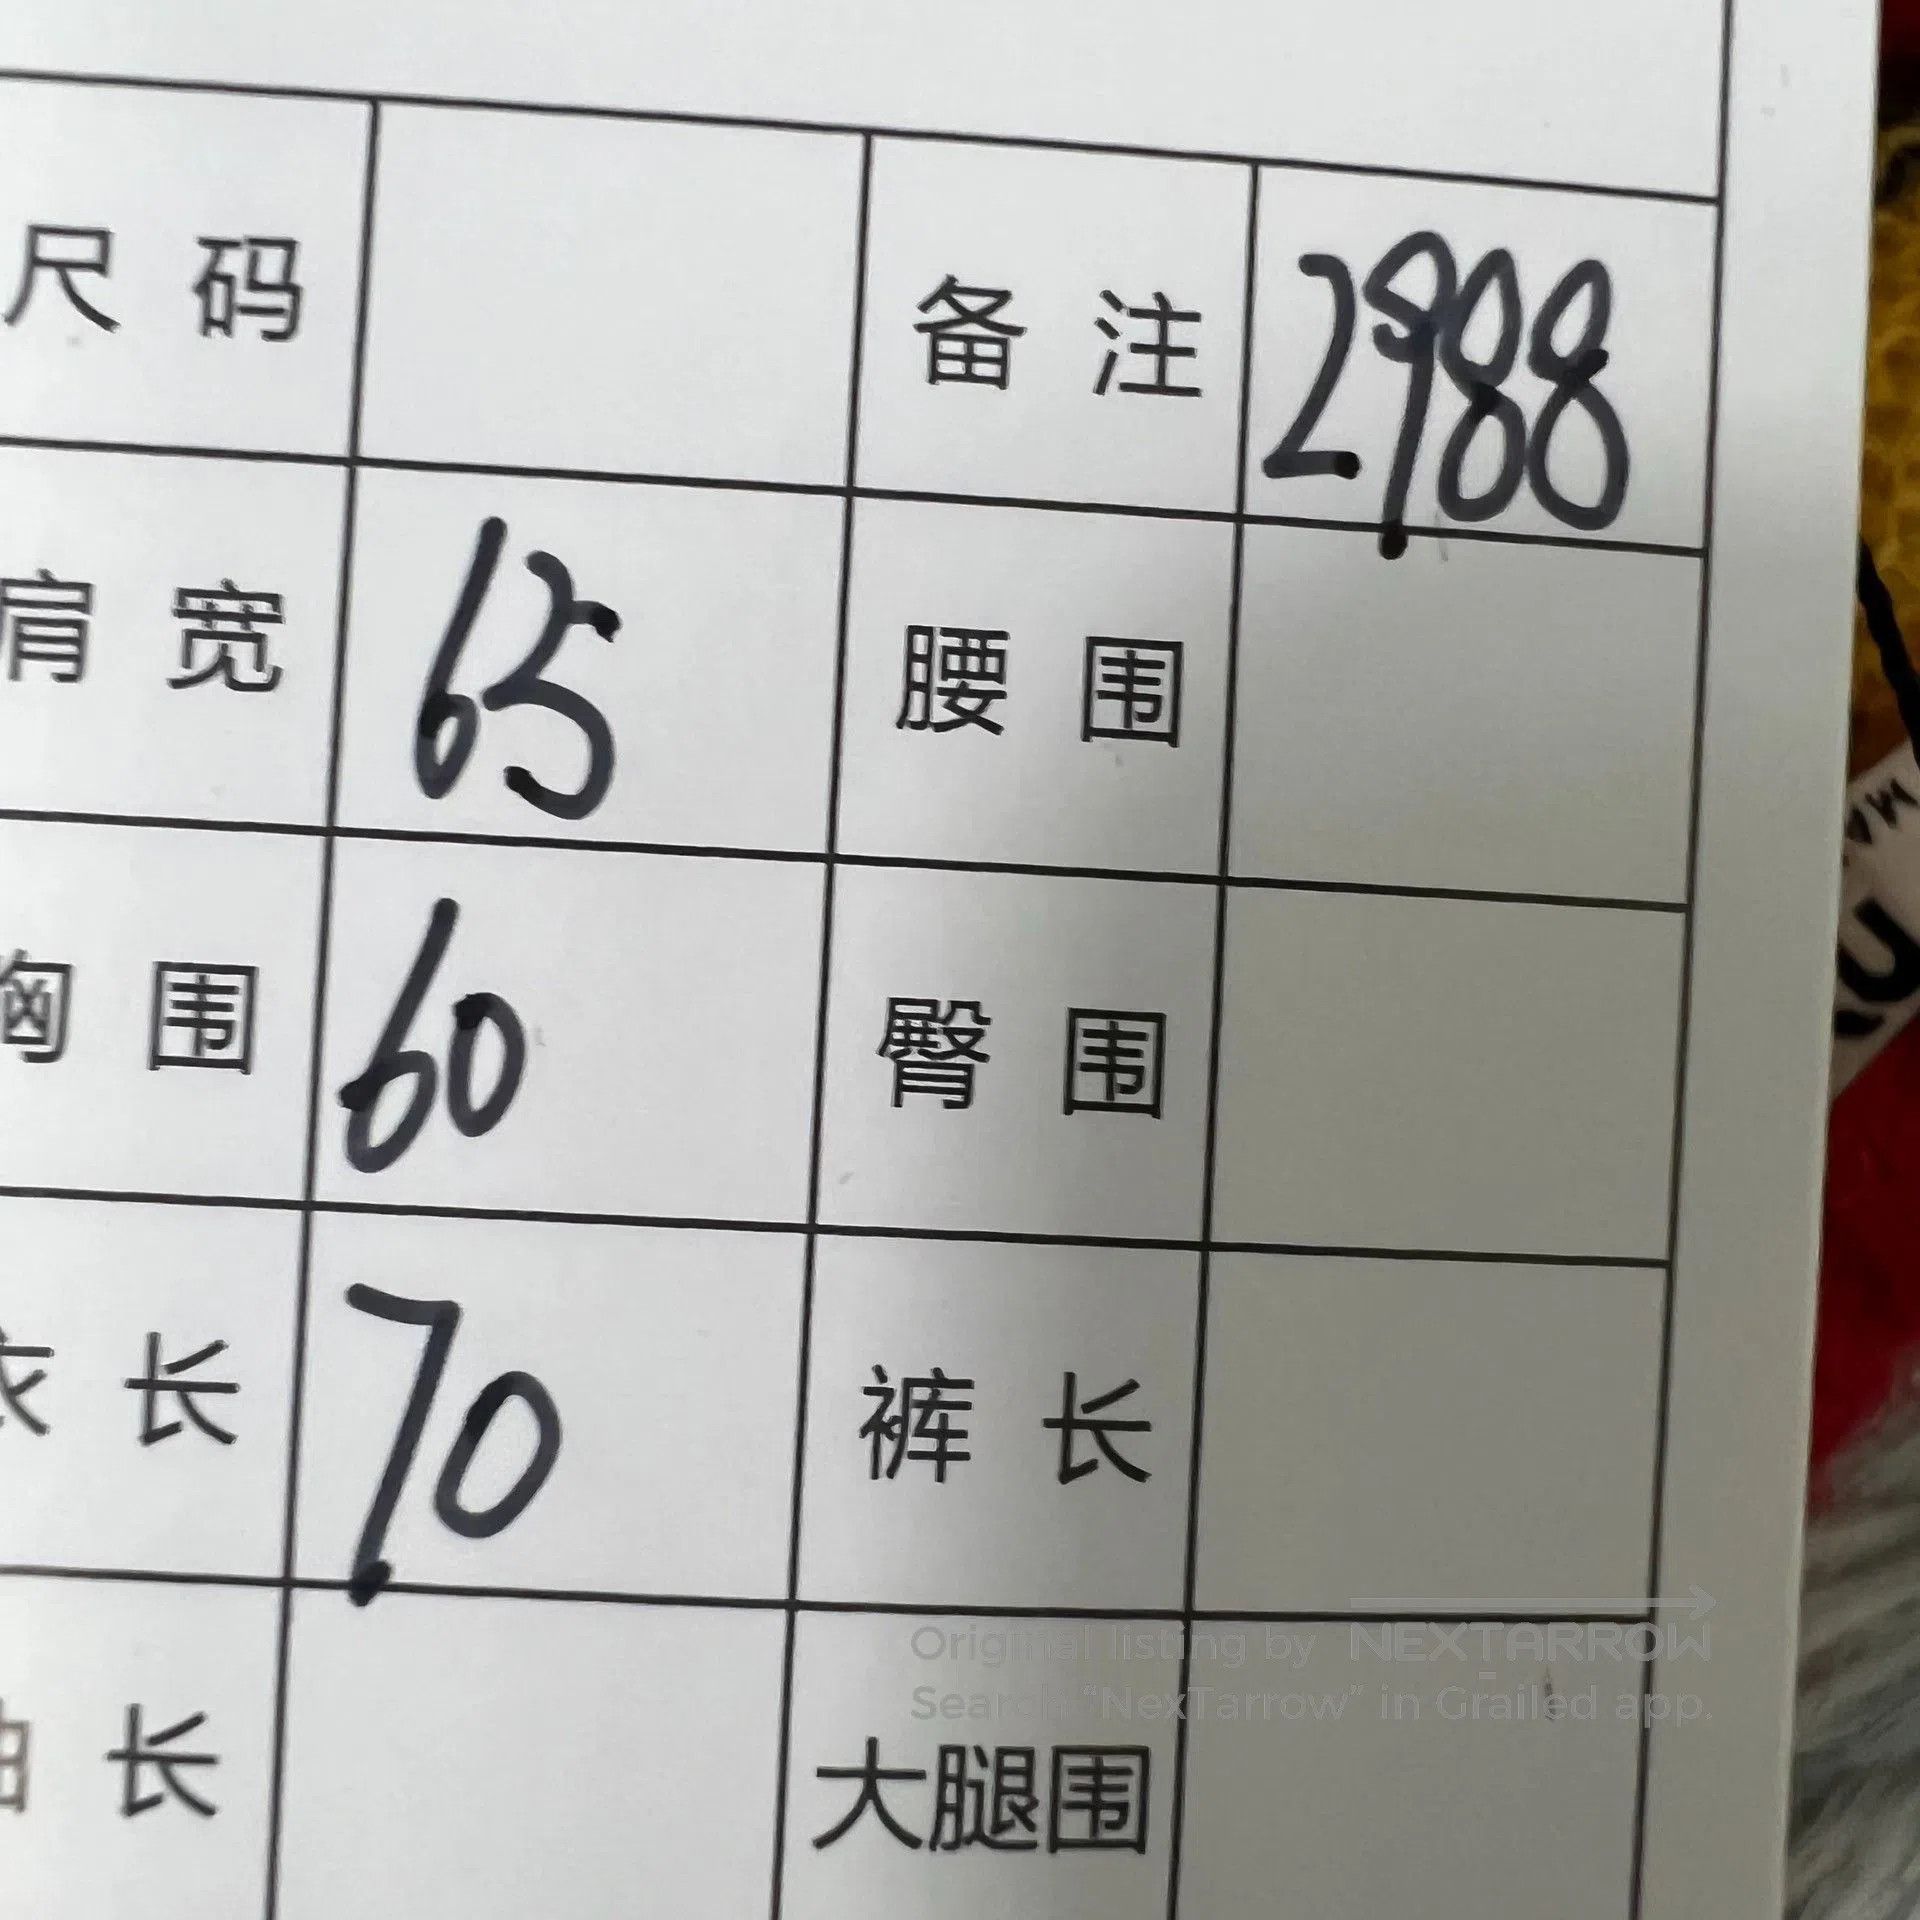 尺 码 备 注 2988
肩 宽 65 腰 围
胸 围 60 臀 围
衣 长 70 裤 长
Original listing by NEXTARROW
Search “NexTarrow” in Grailed app.
袖 长 大腿围